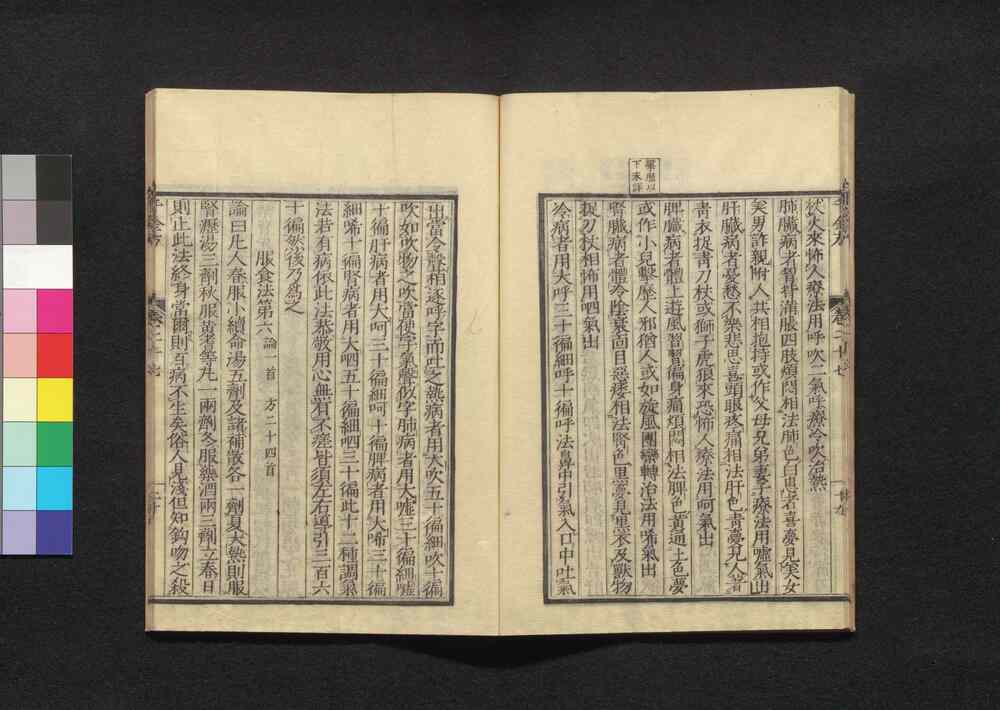 擊歷以
下未詳
狀火來怖人療法用呼吹二氣呼療冷吹治熱
肺臟病者胷背滿脹四肢煩悶相法肺色白患者喜夢見美女
美男詐親附人共相抱持或作父母兄弟妻子療法用噓氣出
肝臟病者憂愁不樂悲思喜頭眼疼痛相法肝色青夢見人著
青衣捉青刀杖或獅子虎狼來恐怖人療法用呵氣出
脾臟病者體上遊風習習徧身痛煩悶相法脾色黃通土色夢
或作小兒擊歷人邪猶人或如旋風團欒轉治法用唏氣出
腎臟病者體冷陰衰面目惡痿相法腎色黑夢見黑衣及獸物
捉刀杖相怖用呬氣出
冷病者用大呼三十徧細呼十徧呼法鼻中引氣入口中吐氣
出當令聲相逐呼字而吐之熱病者用大吹五十徧細吹十徧
吹如吹物之吹當使字氣聲似字肺病者用大噓三十徧細噓
十徧肝病者用大呵三十徧細呵十徧脾病者用大唏三十徧
細唏十徧腎病者用大呬五十徧細呬三十徧此十二種調氣
法若有病依此法恭敬用心無有不差皆須左右導引三百六
十徧然後乃爲之
服食法第六 論一首 方二十四首
論曰凡人春服小續命湯五劑及諸補散各一劑夏大熱則服
腎瀝湯三劑秋服黃耆等丸一兩劑冬服藥酒兩三劑立春日
則止此法終身常爾則百病不生矣俗人見淺但知鉤吻之殺